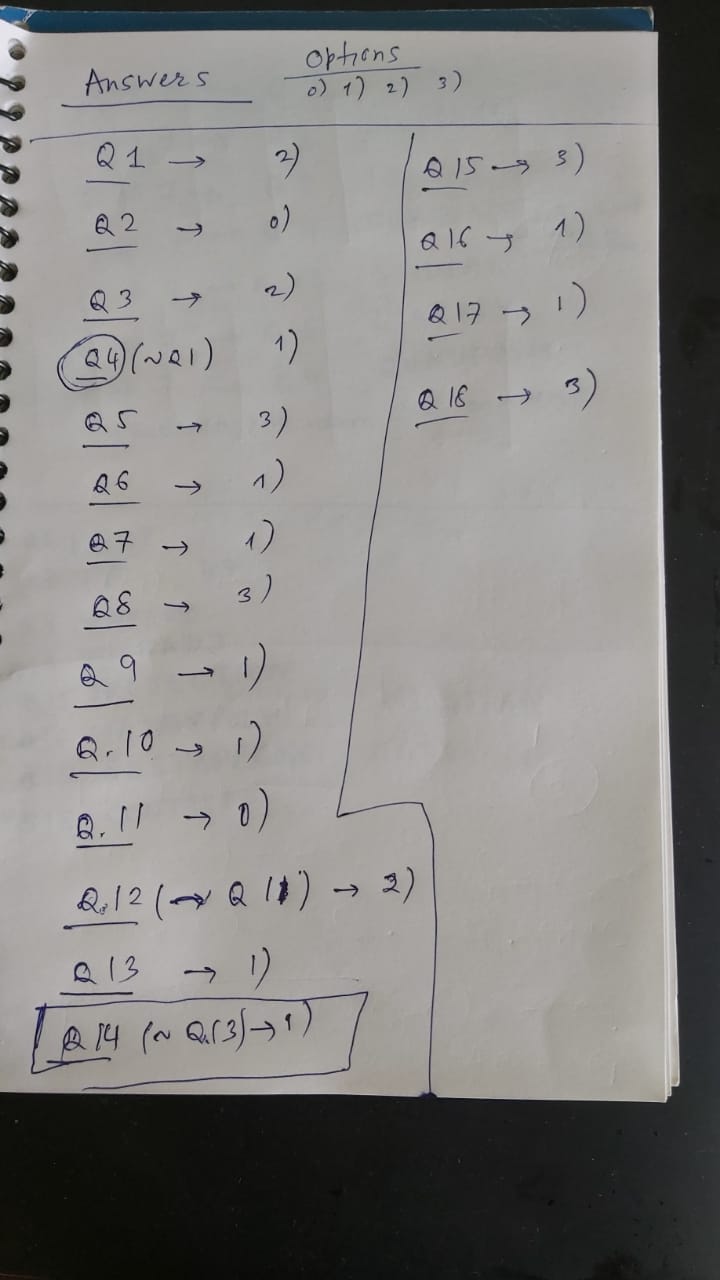 Answers
Options
0) 1) 2) 3)
Q1 → 2)
Q2 → 0)
Q3 → 2)
Q4 (~Q1) 1)
Q5 → 3)
Q6 → 1)
Q7 → 1)
Q8 → 3)
Q9 → 1)
Q.10 → 1)
Q.11 → 0)
Q.12 (→ Q11) → 2)
Q13 → 1)
Q14 (~ Q.13) → 1)
Q15 → 3)
Q16 → 1)
Q17 → 1)
Q18 → 3)